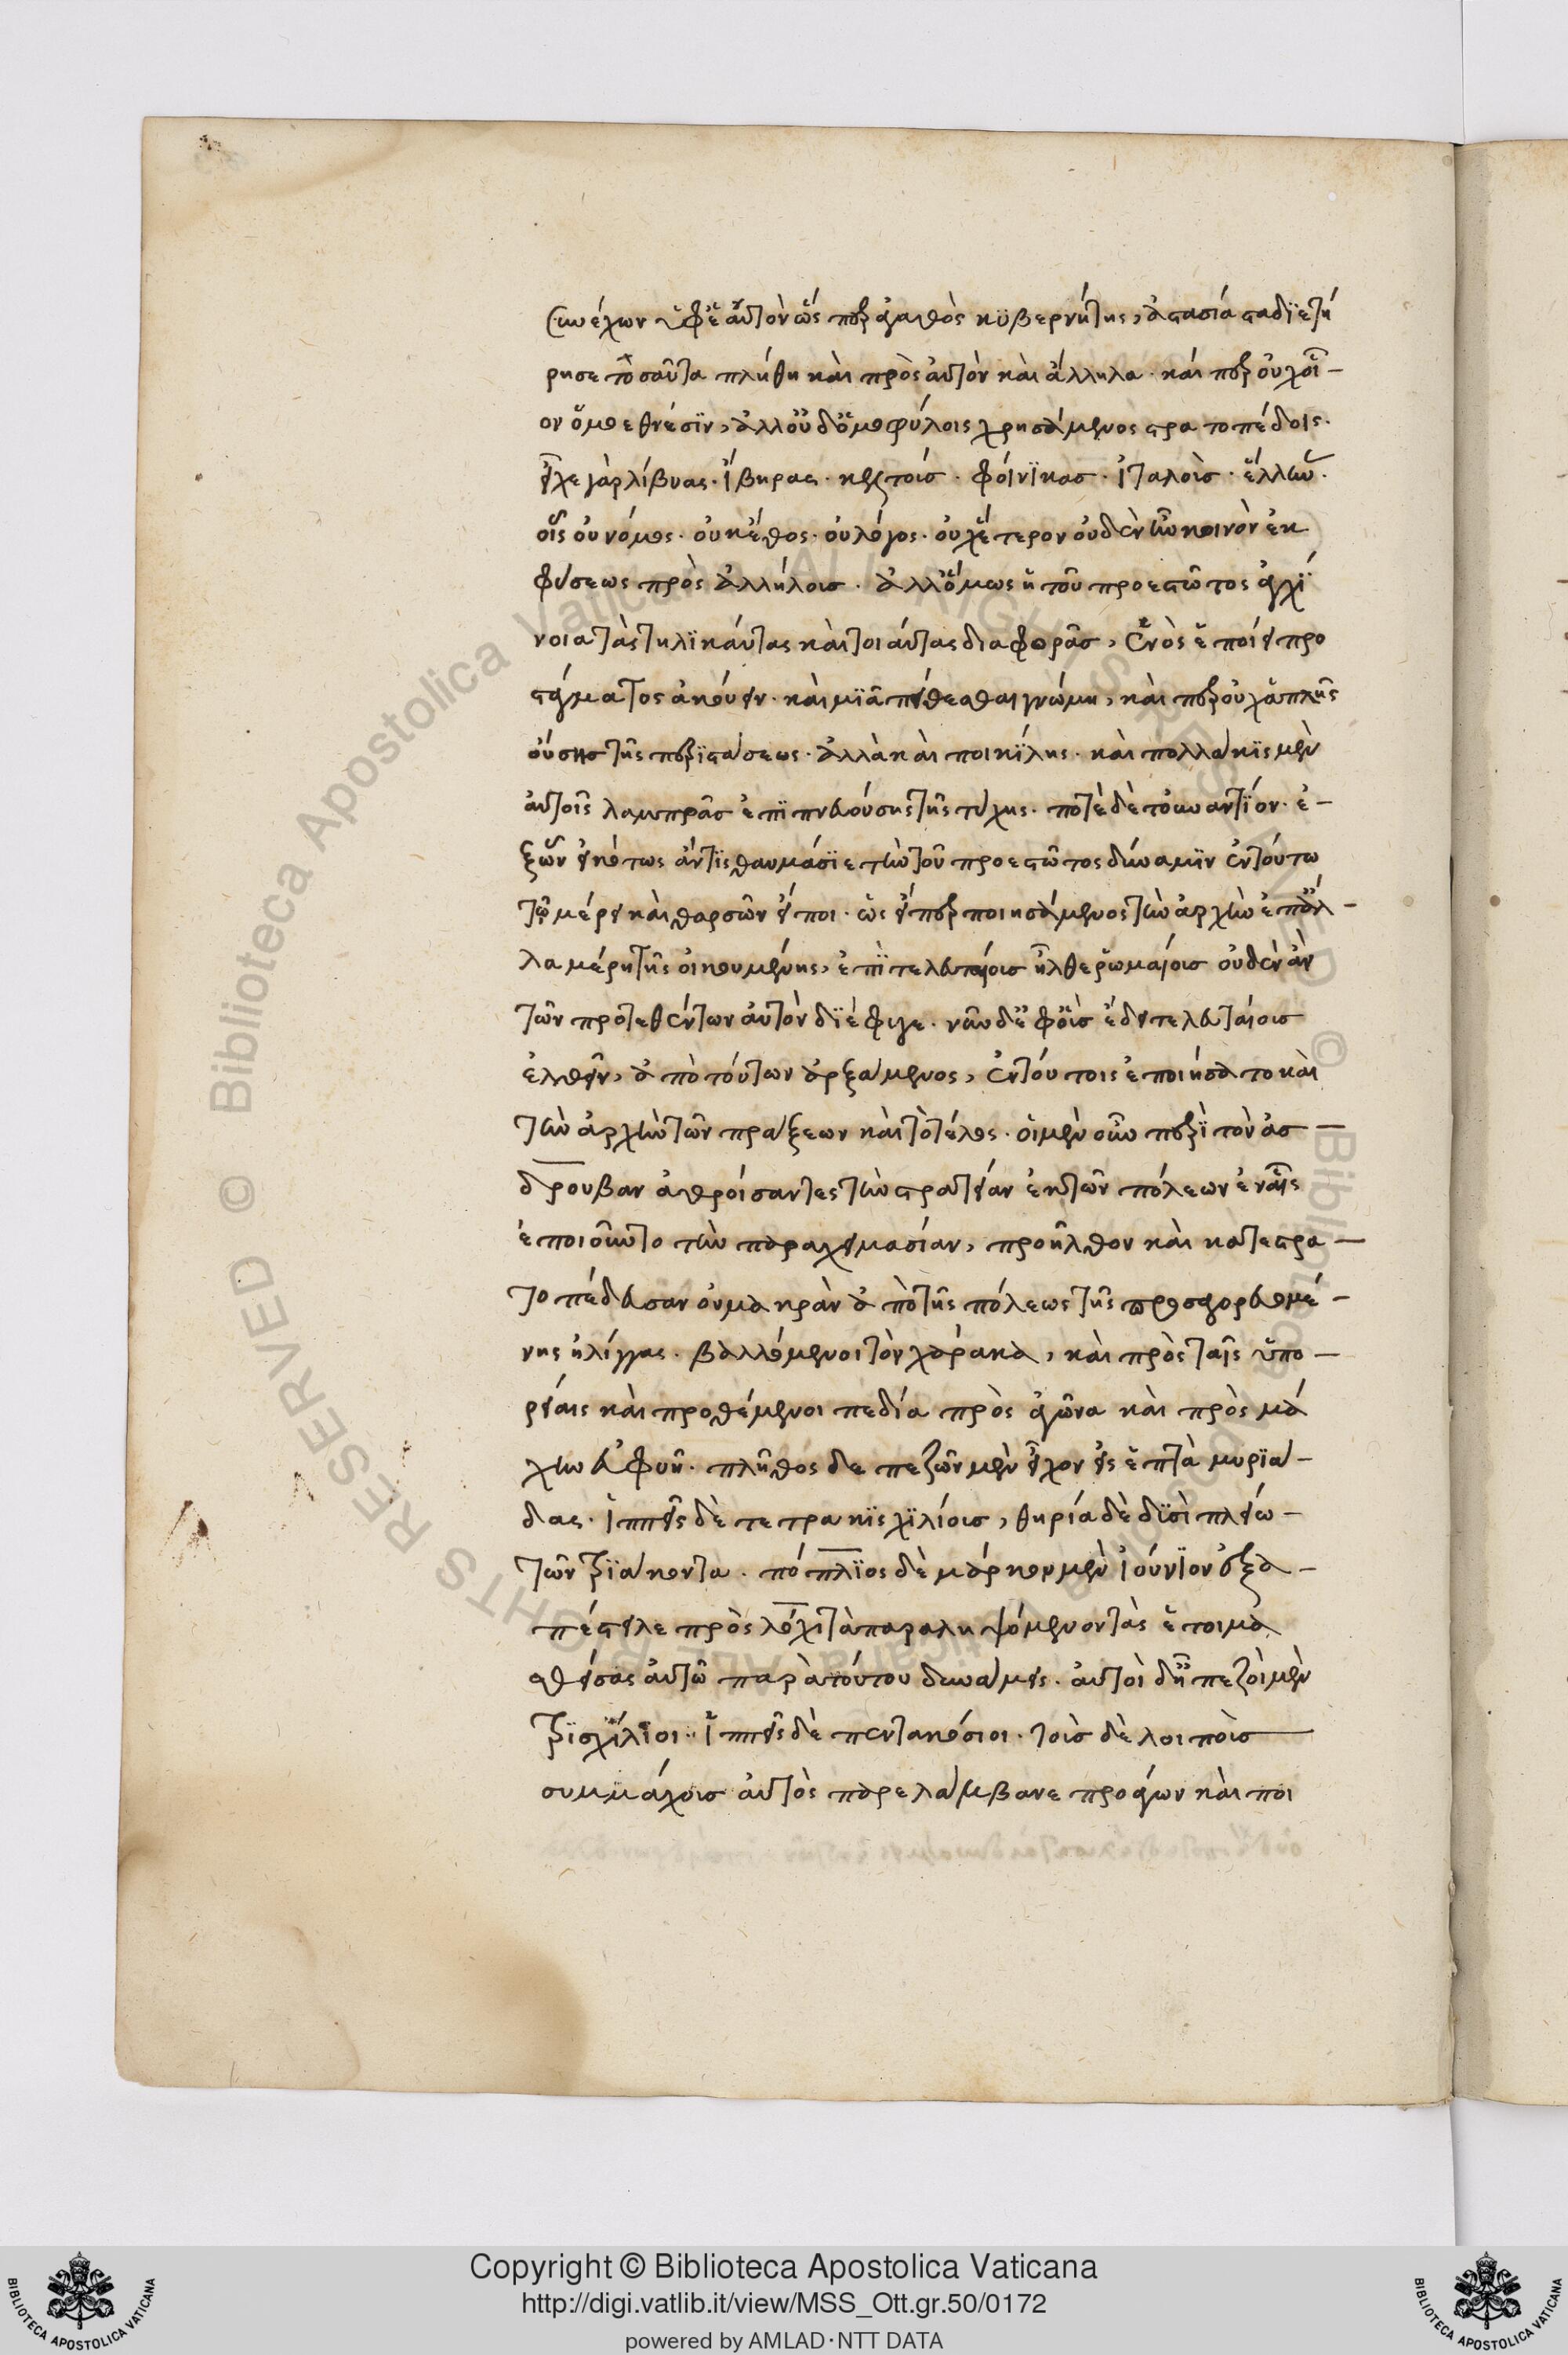 συνέχων ὑφἑαὑτὸν ὥσπερ ἀγαθὸς κυβερνήτης, ἀστασίαστα διετή
ρησε τοσαῦτα πλήθη καὶ πρὸς αὑτὸν καὶ ἄλληλα. καί περ οὐχ οἷ-
ον ὁμοεθνέσιν, ἀλλ οὐδ ὁμοφύλοις χρησάμενος στρατοπέδοις.
εἶχε γὰρ λίβυας. ἴβηρας. κελτούς. φοίνικας. ἰταλούς. ἕλληνας.
οἷς οὐ νόμος. οὐκ ἔθος. οὐ λόγος. οὐχ ἕτερον οὐδὲν ἦν κοινὸν ἐκ
φύσεως πρὸς ἀλλήλους. ἀλλ ὅμως ἡ τοῦ προεστῶτος ἀγχί
νοια τὰς τηλικαύτας καὶ τοιαύτας διαφορὰς, ἑνὸς ἐποίει προ
στάγματος ἀκούειν. καὶ μιᾷ πείθεσθαι γνώμῃ, καὶ περ οὐχ ἁπλῆς
οὔσης τῆς περιστάσεως. ἀλλὰ καὶ ποικίλης. καὶ πολλάκις μὲν
αὐτοῖς λαμπρᾶς ἐπιπνεούσης τῆς τύχης. ποτὲ δὲ τοὐναντίον. ἐ-
ξ ὧν εἰκότως ἄν τις θαυμάσειε τὴν τοῦ προεστῶτος δύναμιν ἐν τούτω
τῷ μέρει καὶ θαρσῶν εἴποι. ὡς εἴπερ ποιησάμενος τὴν ἀρχὴν ἐπ ἄλ-
λα μέρη τῆς οἰκουμένης, ἐπὶ τελευταίους ἦλθε ῥωμαίους οὐδὲν ἂν
τῶν προτεθέντων αὐτὸν διέφυγε. νῦν δὲ ἐφ οὓς ἔδει τελευταίους
ἐλθεῖν, ἀπὸ τούτων ἀρξάμενος, ἐν τούτοις ἐποιήσατο καὶ
τὴν ἀρχὴν τῶν πράξεων καὶ τὸ τέλος. οἱ μὲν οὖν περὶ τὸν ἀσ-
δρούβαν ἀθροίσαντες τὴν στρατείαν ἐκ τῶν πόλεων ἐν αἷς
ἐποιοῦντο τὴν παραχειμασίαν, προῆλθον καὶ κατεστρα-
τοπέδευσαν οὐ μακρὰν ἀπὸ τῆς πόλεως τῆς προσαγορευομέ-
νης ἠλίγγας. βαλλόμενοι τὸν χάρακα, καὶ πρὸς ταῖς ὑπο-
ρείαις καὶ προθέμενοι πεδία πρὸς ἀγῶνα καὶ πρὸς μά
χην εὐφυῆ. πλῆθος δε πεζῶν μὲν εἶχον εἰς ἑπτὰ μυριά-
δας. ἱππεῖς δὲ τετρακισχιλίους, θηρία δὲ δυσὶ πλείω-
τῶν τριάκοντα. πόπλιος δὲ μάρκον μὲν ἰούνιον ἐξα-
πέστειλε πρὸς λόχιτὰ παραληψόμενον τὰς ἑτοιμα
σθείσας αὐτῷ παρὰ τούτου δυνάμεις. αὗτοι δ ἦ πεζοὶ μὲν
τρισχίλιοι. ἱππεῖς δὲ πεντακόσιοι. τοὺς δὲ λοιποὺς
συμμάχους αὐτὸς παρελάμβανε προάγων καὶ ποι
Copyright © Biblioteca Apostolica Vaticana
http://digi.vatlib.it/view/MSS_Ott.gr.50/0172
powered by AMLAD·NTT DATA